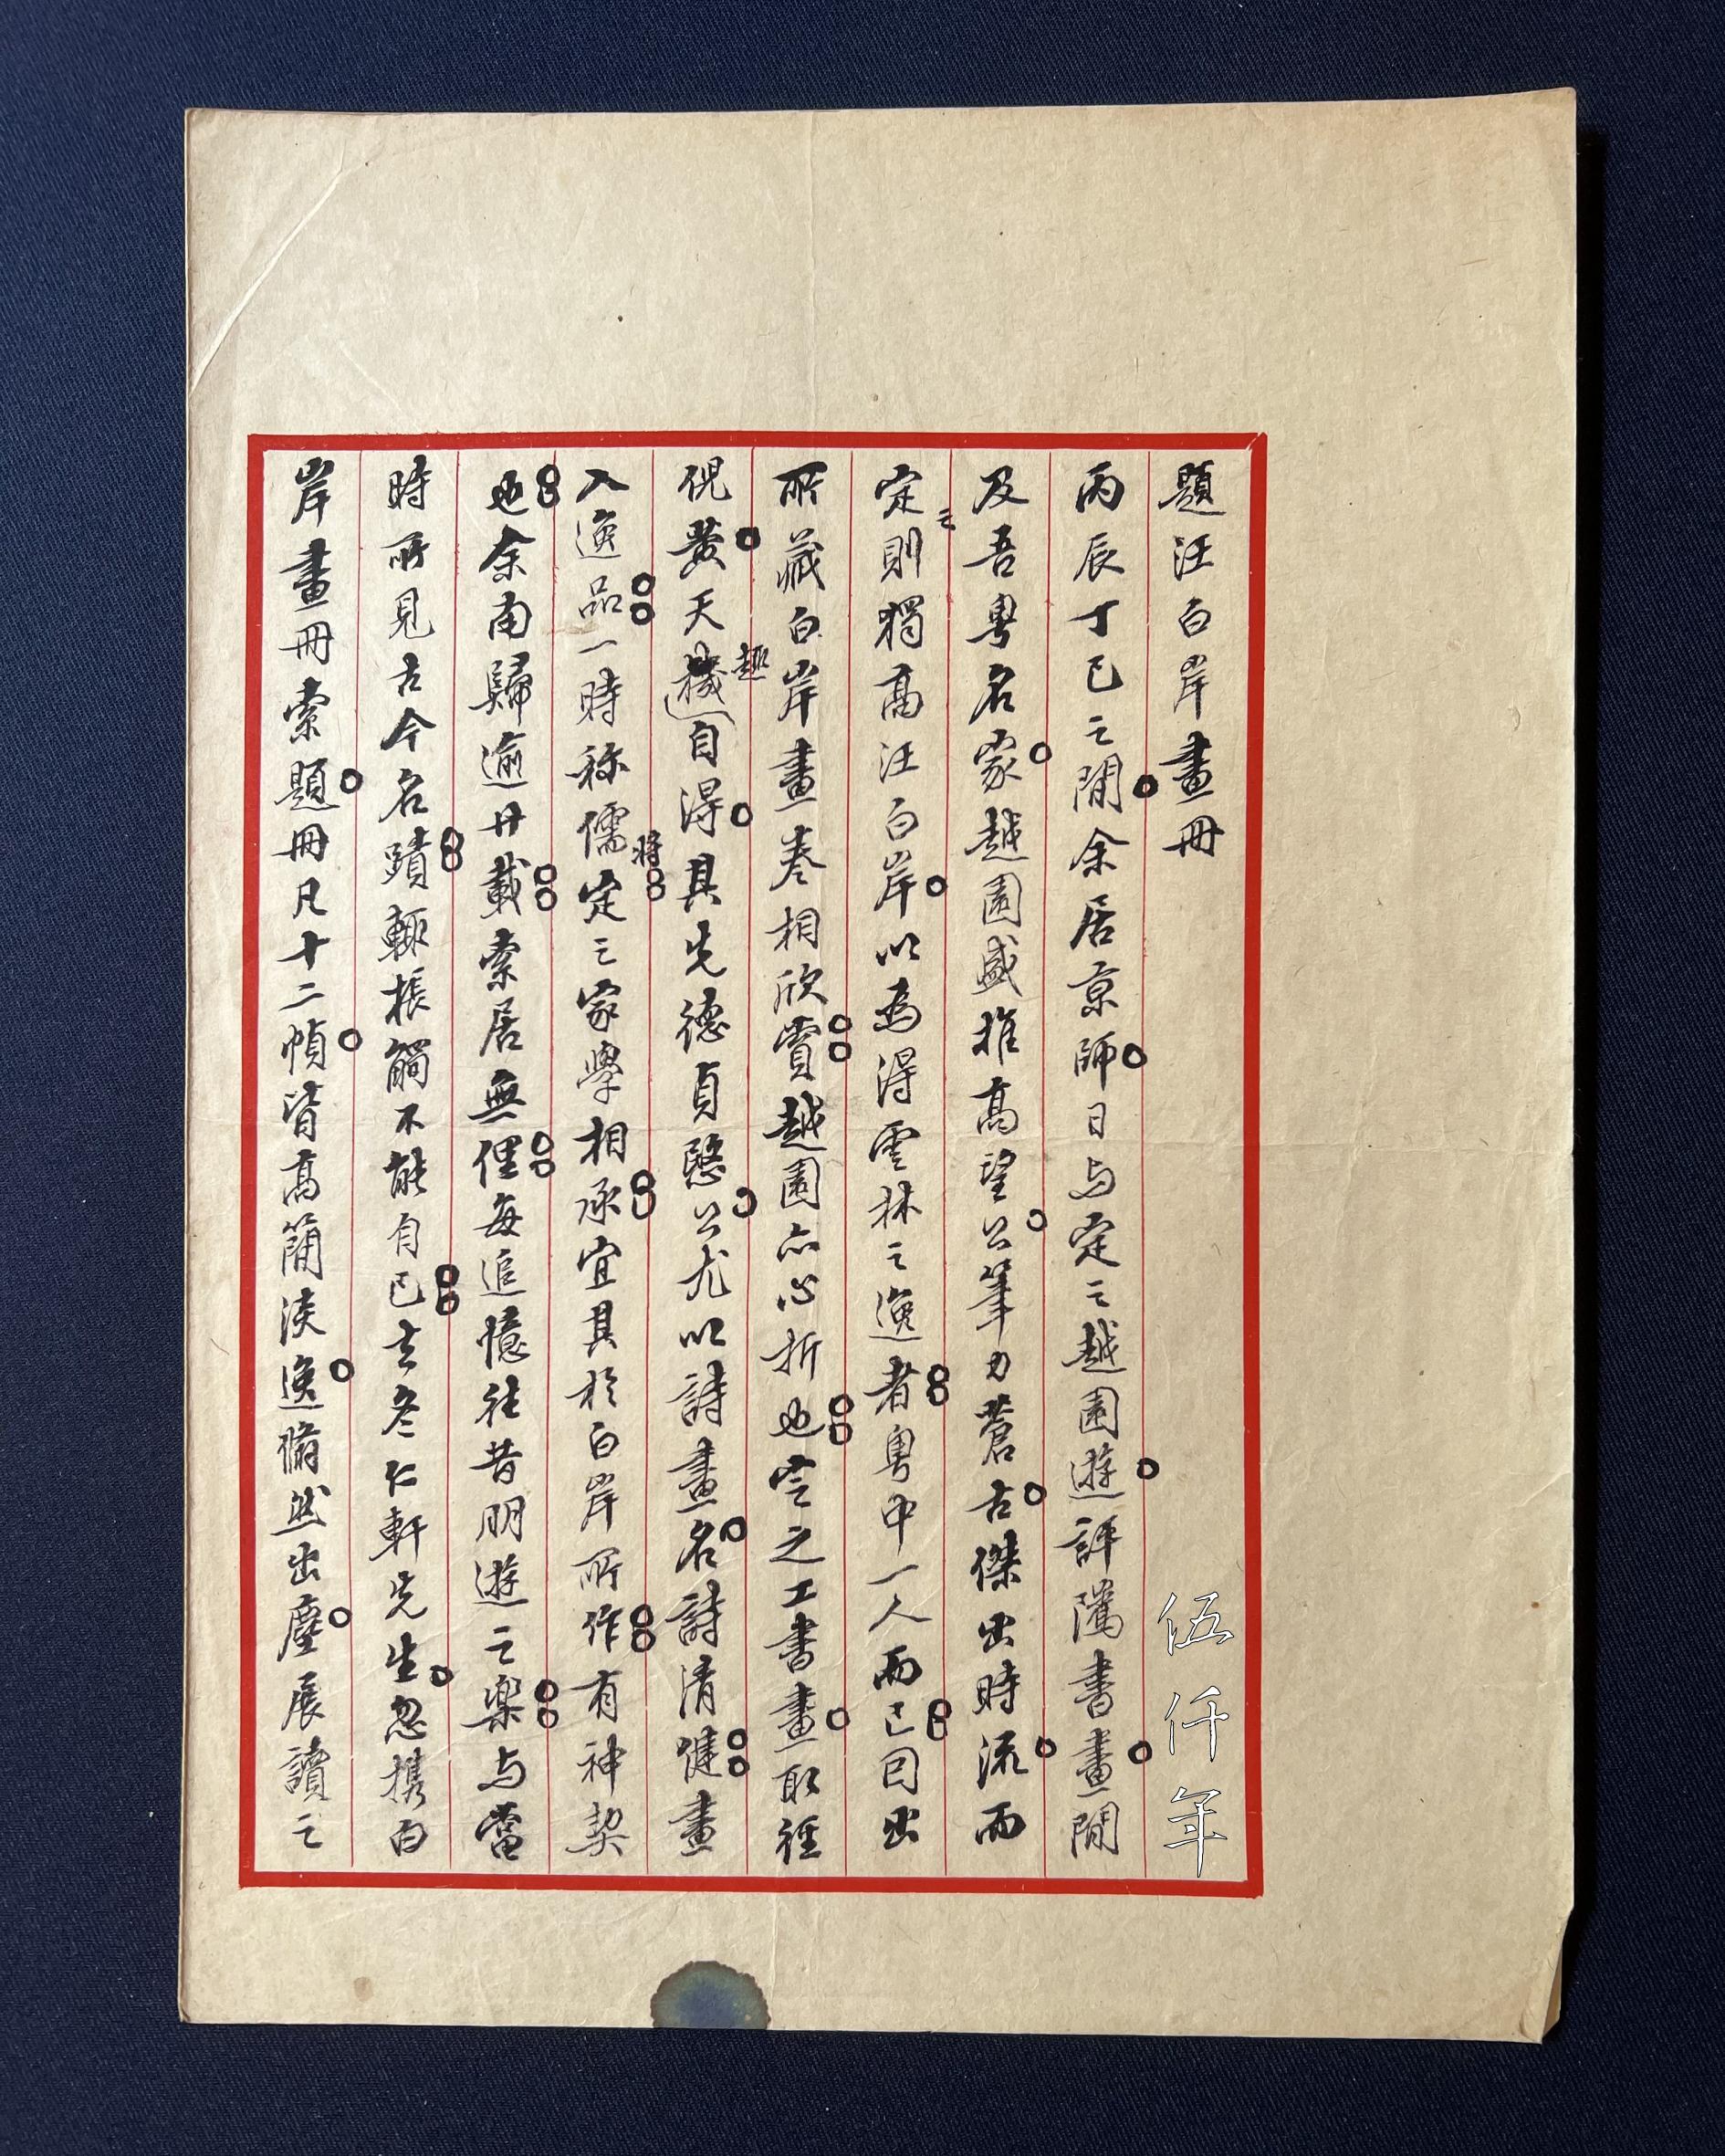 題汪白岸畫冊
丙辰丁巳之間余居京師日与定之越園遊評隲書畫間
及吾粵名家越園盛推高望公筆力蒼古傑出時流而
定之則獨高汪白岸以為得雲林之逸者粵中一人而已因出
所藏白岸畫卷相欣賞越園亦心折也定之工書畫取徑
倪黄天機趣自得其先德貞愍公尤以詩畫名詩清健畫
入逸品一時称儒將定之家學相承宜其於白岸所作有神契
也余南歸逾廿載索居無俚每追憶往昔朋遊之樂与當
時所見古今名蹟輒棖觸不能自已去冬仁軒先生忽携白
岸畫冊索題冊凡十二幀皆高簡淡逸翛然出塵展讀之
伍仟年